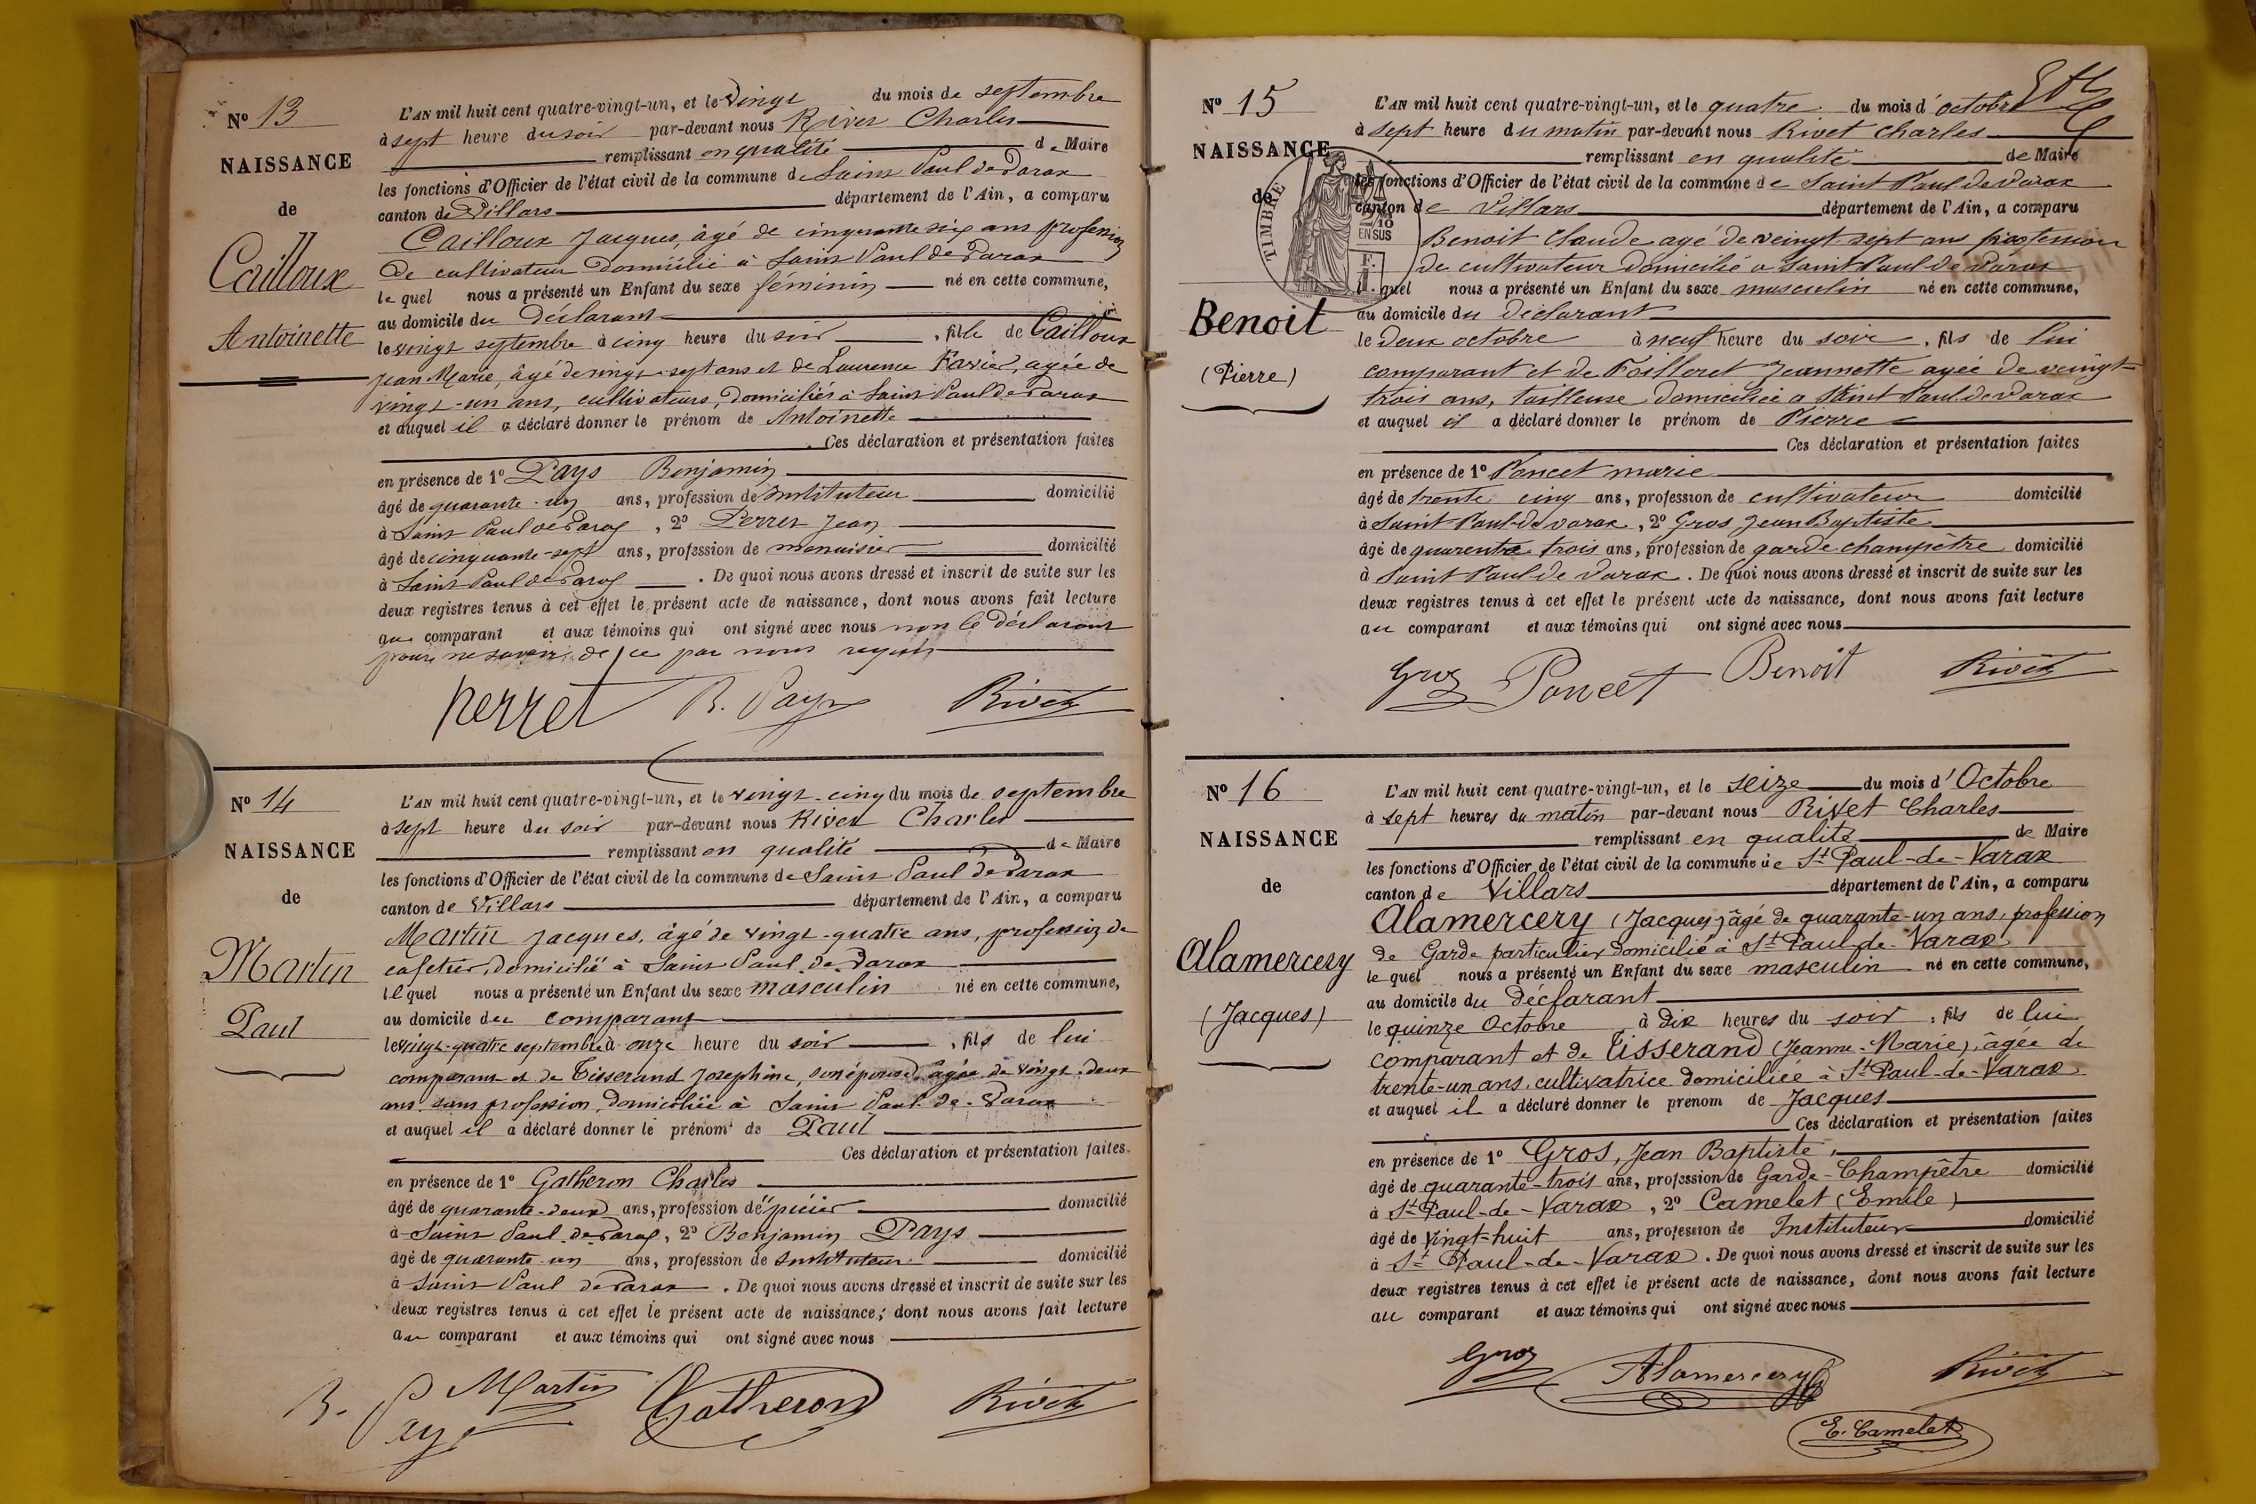 N° 13
NAISSANCE
de
Cailloux
Antoinette
L'AN mil huit cent quatre-vingt-un, et le vingt du mois de septembre
à sept heure du soir par-devant nous Rivet Charles
remplissant en qualité de Maire
les fonctions d'Officier de l'état civil de la commune de Saint Paul de Varax
canton de Villars département de l'Ain, a comparu
Cailloux Jacques, âgé de cinquante six ans profession
de cultivateur domicilié à Saint Paul de Varax
le quel nous a présenté un Enfant du sexe féminin né en cette commune,
au domicile du déclarant
le vingt septembre à cinq heure du soir, fille de Cailloux
Jean Marie, âgé de vingt-sept ans et de Laurence Favier, agée de
vingt-un ans, cultivateurs, domiciliés à Saint Paul de Varax
et auquel il a déclaré donner le prénom de Antoinette
Ces déclaration et présentation faites
en présence de 1° Pays Benjamin
âgé de quarante-un ans, profession de Instituteur domicilié
à Saint Paul de Varax, 2° Perret Jean
âgé de cinquante-sept ans, profession de menuisier domicilié
à Saint Paul de Varax. De quoi nous avons dressé et inscrit de suite sur les
deux registres tenus à cet effet le présent acte de naissance, dont nous avons fait lecture
au comparant et aux témoins qui ont signé avec nous non le déclarant
pour ne savoir de ce par nous requis
Perret B. Pays Rivet
N° 14
NAISSANCE
de
Martin
Paul
L'AN mil huit cent quatre-vingt-un, et le vingt-cinq du mois de septembre
à sept heure du soir par-devant nous Rivet Charles
remplissant en qualité de Maire
les fonctions d'Officier de l'état civil de la commune de Saint Paul de Varax
canton de Villars département de l'Ain, a comparu
Martin Jacques, âgé de vingt-quatre ans, profession de
cafetier, domicilié à Saint Paul de Varax
le quel nous a présenté un Enfant du sexe masculin né en cette commune,
au domicile du comparant
le vingt-quatre septembre à onze heure du soir, fils de lui
comparant et de Tisserand Josephine, son épouse agée de vingt-deux
ans sans profession, domiciliée à Saint Paul-de-Varax
et auquel il a déclaré donner le prénom de Paul
Ces déclaration et présentation faites
en présence de 1° Gatheron Charles
âgé de quarante-deux ans, profession d'épicier domicilié
à Saint Paul-de-Varax, 2° Benjamin Pays
âgé de quarante-un ans, profession de Instituteur domicilié
à Saint Paul de Varax. De quoi nous avons dressé et inscrit de suite sur les
deux registres tenus à cet effet le présent acte de naissance, dont nous avons fait lecture
au comparant et aux témoins qui ont signé avec nous
B. Pays Martin Gatheron Rivet
N° 15
NAISSANCE
de
Benoit
(Pierre)
TIMBRE
2/10
EN SUS
L'AN mil huit cent quatre-vingt-un, et le quatre du mois d'octobre
à sept heure du matin par-devant nous Rivet Charles
remplissant en qualité de Maire
les fonctions d'Officier de l'état civil de la commune de Saint Paul de Varax
canton de Villars département de l'Ain, a comparu
Benoit Claude agé de veingt-sept ans profession
de cultivateur domicilié a Saint Paul de Varax
le quel nous a présenté un Enfant du sexe masculin né en cette commune,
au domicile du déclarant
le deux octobre à neuf heure du soir, fils de lui
comparant et de Foilleret Jeannette agée de veingt-
trois ans, tailleuse domiciliée a Saint Paul de Varax
et auquel il a déclaré donner le prénom de Pierre
Ces déclaration et présentation faites
en présence de 1° Poncet marie
âgé de trente cinq ans, profession de cultivateur domicilié
à Saint Paul-de varax, 2° Gros Jean Baptiste
âgé de quarente trois ans, profession de garde champêtre domicilié
à Saint Paul de Varax. De quoi nous avons dressé et inscrit de suite sur les
deux registres tenus à cet effet le présent acte de naissance, dont nous avons fait lecture
au comparant et aux témoins qui ont signé avec nous
Gros Poncet Benoit Rivet
N° 16
NAISSANCE
de
Alamercery
(Jacques)
L'AN mil huit cent quatre-vingt-un, et le seize du mois d'Octobre
à sept heures du matin par-devant nous Rivet Charles
remplissant en qualité de Maire
les fonctions d'Officier de l'état civil de la commune de St Paul-de-Varax
canton de Villars département de l'Ain, a comparu
Alamercery (Jacques) âgé de quarante-un ans, profession
de Garde particulier domicilié à St Paul-de-Varax
le quel nous a présenté un Enfant du sexe masculin né en cette commune,
au domicile du déclarant
le quinze Octobre à dix heures du soir, fils de lui
comparant et de Tisserand (Jeanne-Marie), âgée de
trente-un ans, cultivatrice domiciliée à St Paul-de-Varax
et auquel il a déclaré donner le prénom de Jacques
Ces déclaration et présentation faites
en présence de 1° Gros, Jean Baptiste,
âgé de quarante-trois ans, profession de Garde-Champêtre domicilié
à St Paul-de-Varax, 2° Camelet (Emile)
âgé de vingt-huit ans, profession de Instituteur domicilié
à St Paul-de-Varax. De quoi nous avons dressé et inscrit de suite sur les
deux registres tenus à cet effet le présent acte de naissance, dont nous avons fait lecture
au comparant et aux témoins qui ont signé avec nous
Gros Alamercery Rivet
E. Camelet